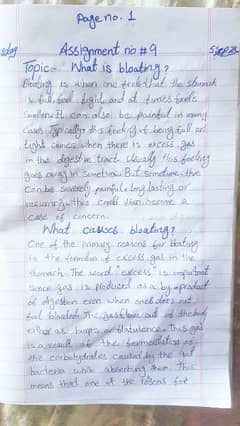 Page no. 1
Assignment no #9
Topic:- What is bloating?
Bloating is when one feels that the stomach
is full, tight and at times feels
swollen. It can also be painful in many
cases. Typically this feeling of being full or
tight comes when there is excess gas
in the digestive tract. Usually this feeling
goes away in sometime. But sometime this
can be severely painful & long lasting or
recurring, this could then become a
case of concern.
What causes bloating?
One of the primary reasons for bloating
is the formation of excess gas in the
stomach. The word "excess" is important
since gas is produced as a by product
of digestion even when one does not
feel bloated. The gas flows out of the body
either as burps or flatulence. This gas
is a result of the fermentation of
the carbohydrates caused by the gut
bacteria while absorbing them. This
means that one of the reasons for